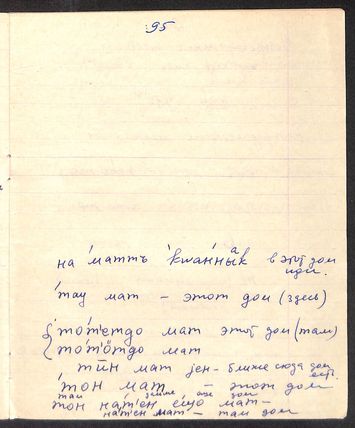 95
на матть кwанны̄к в этот дом
иди.
тау мат – этот дом (здесь)
то́т'етдо мат этот дом (там)
то́т'ӧтдо мат
тӣн мат jен - ближе сюда дом
есть.
тон мат – этот дом
там дальше еще дом
тон на́т'ен ещо мат –
на́т'ен мат – там дом